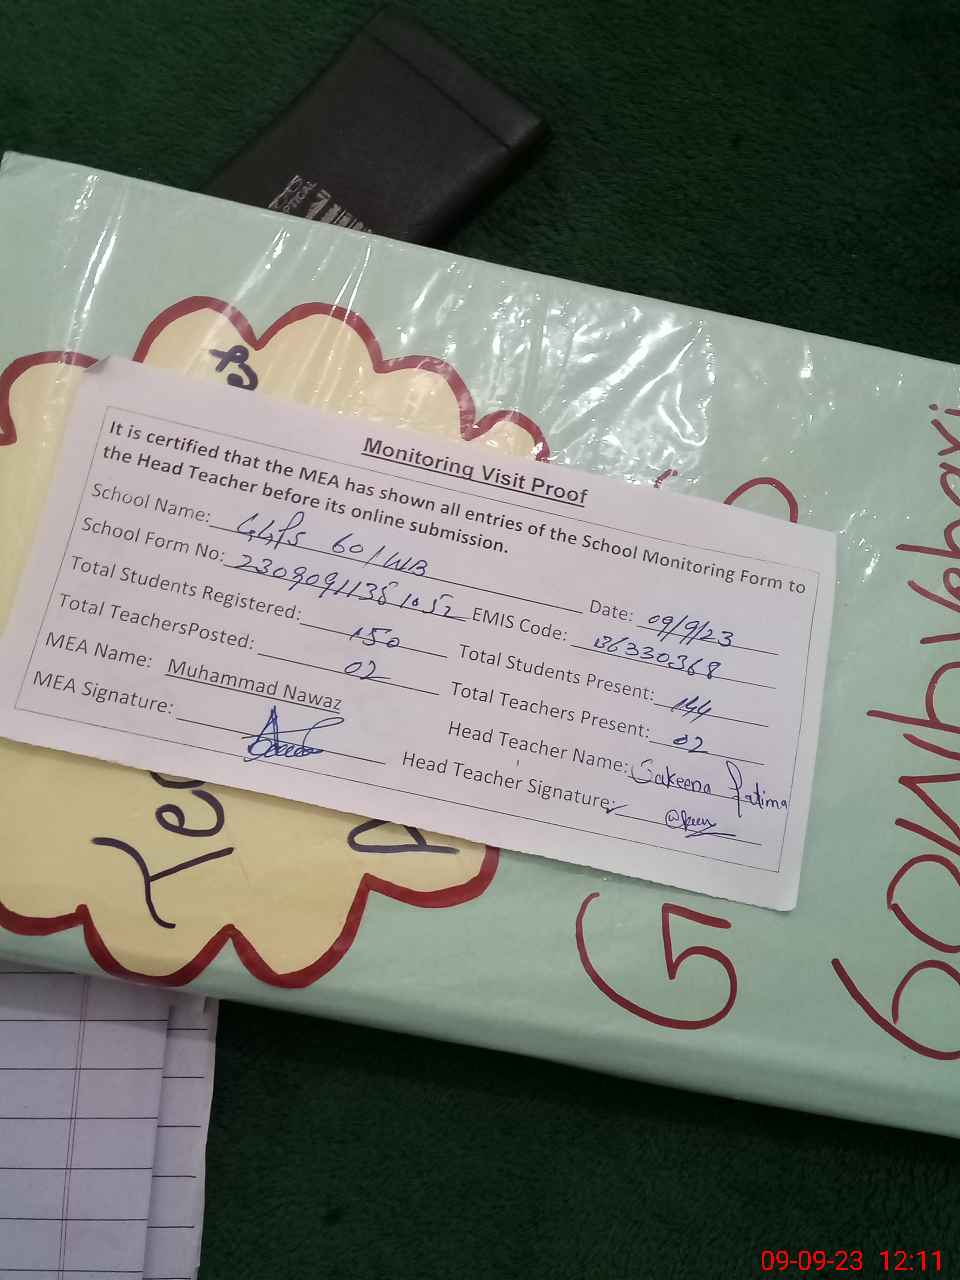 PTICAL
Monitoring Visit Proof
It is certified that the MEA has shown all entries of the School Monitoring Form to
the Head Teacher before its online submission.
School Name: GGPS 60/WB Date: 09/9/23
School Form No: 23090911381052 EMIS Code: 36330368
Total Students Registered: 150 Total Students Present: 144
Total TeachersPosted: 02 Total Teachers Present: 02
MEA Name: Muhammad Nawaz Head Teacher Name: Sakeena Fatima
MEA Signature: Head Teacher Signature:
G
60/WB Vehari
09-09-23 12:11